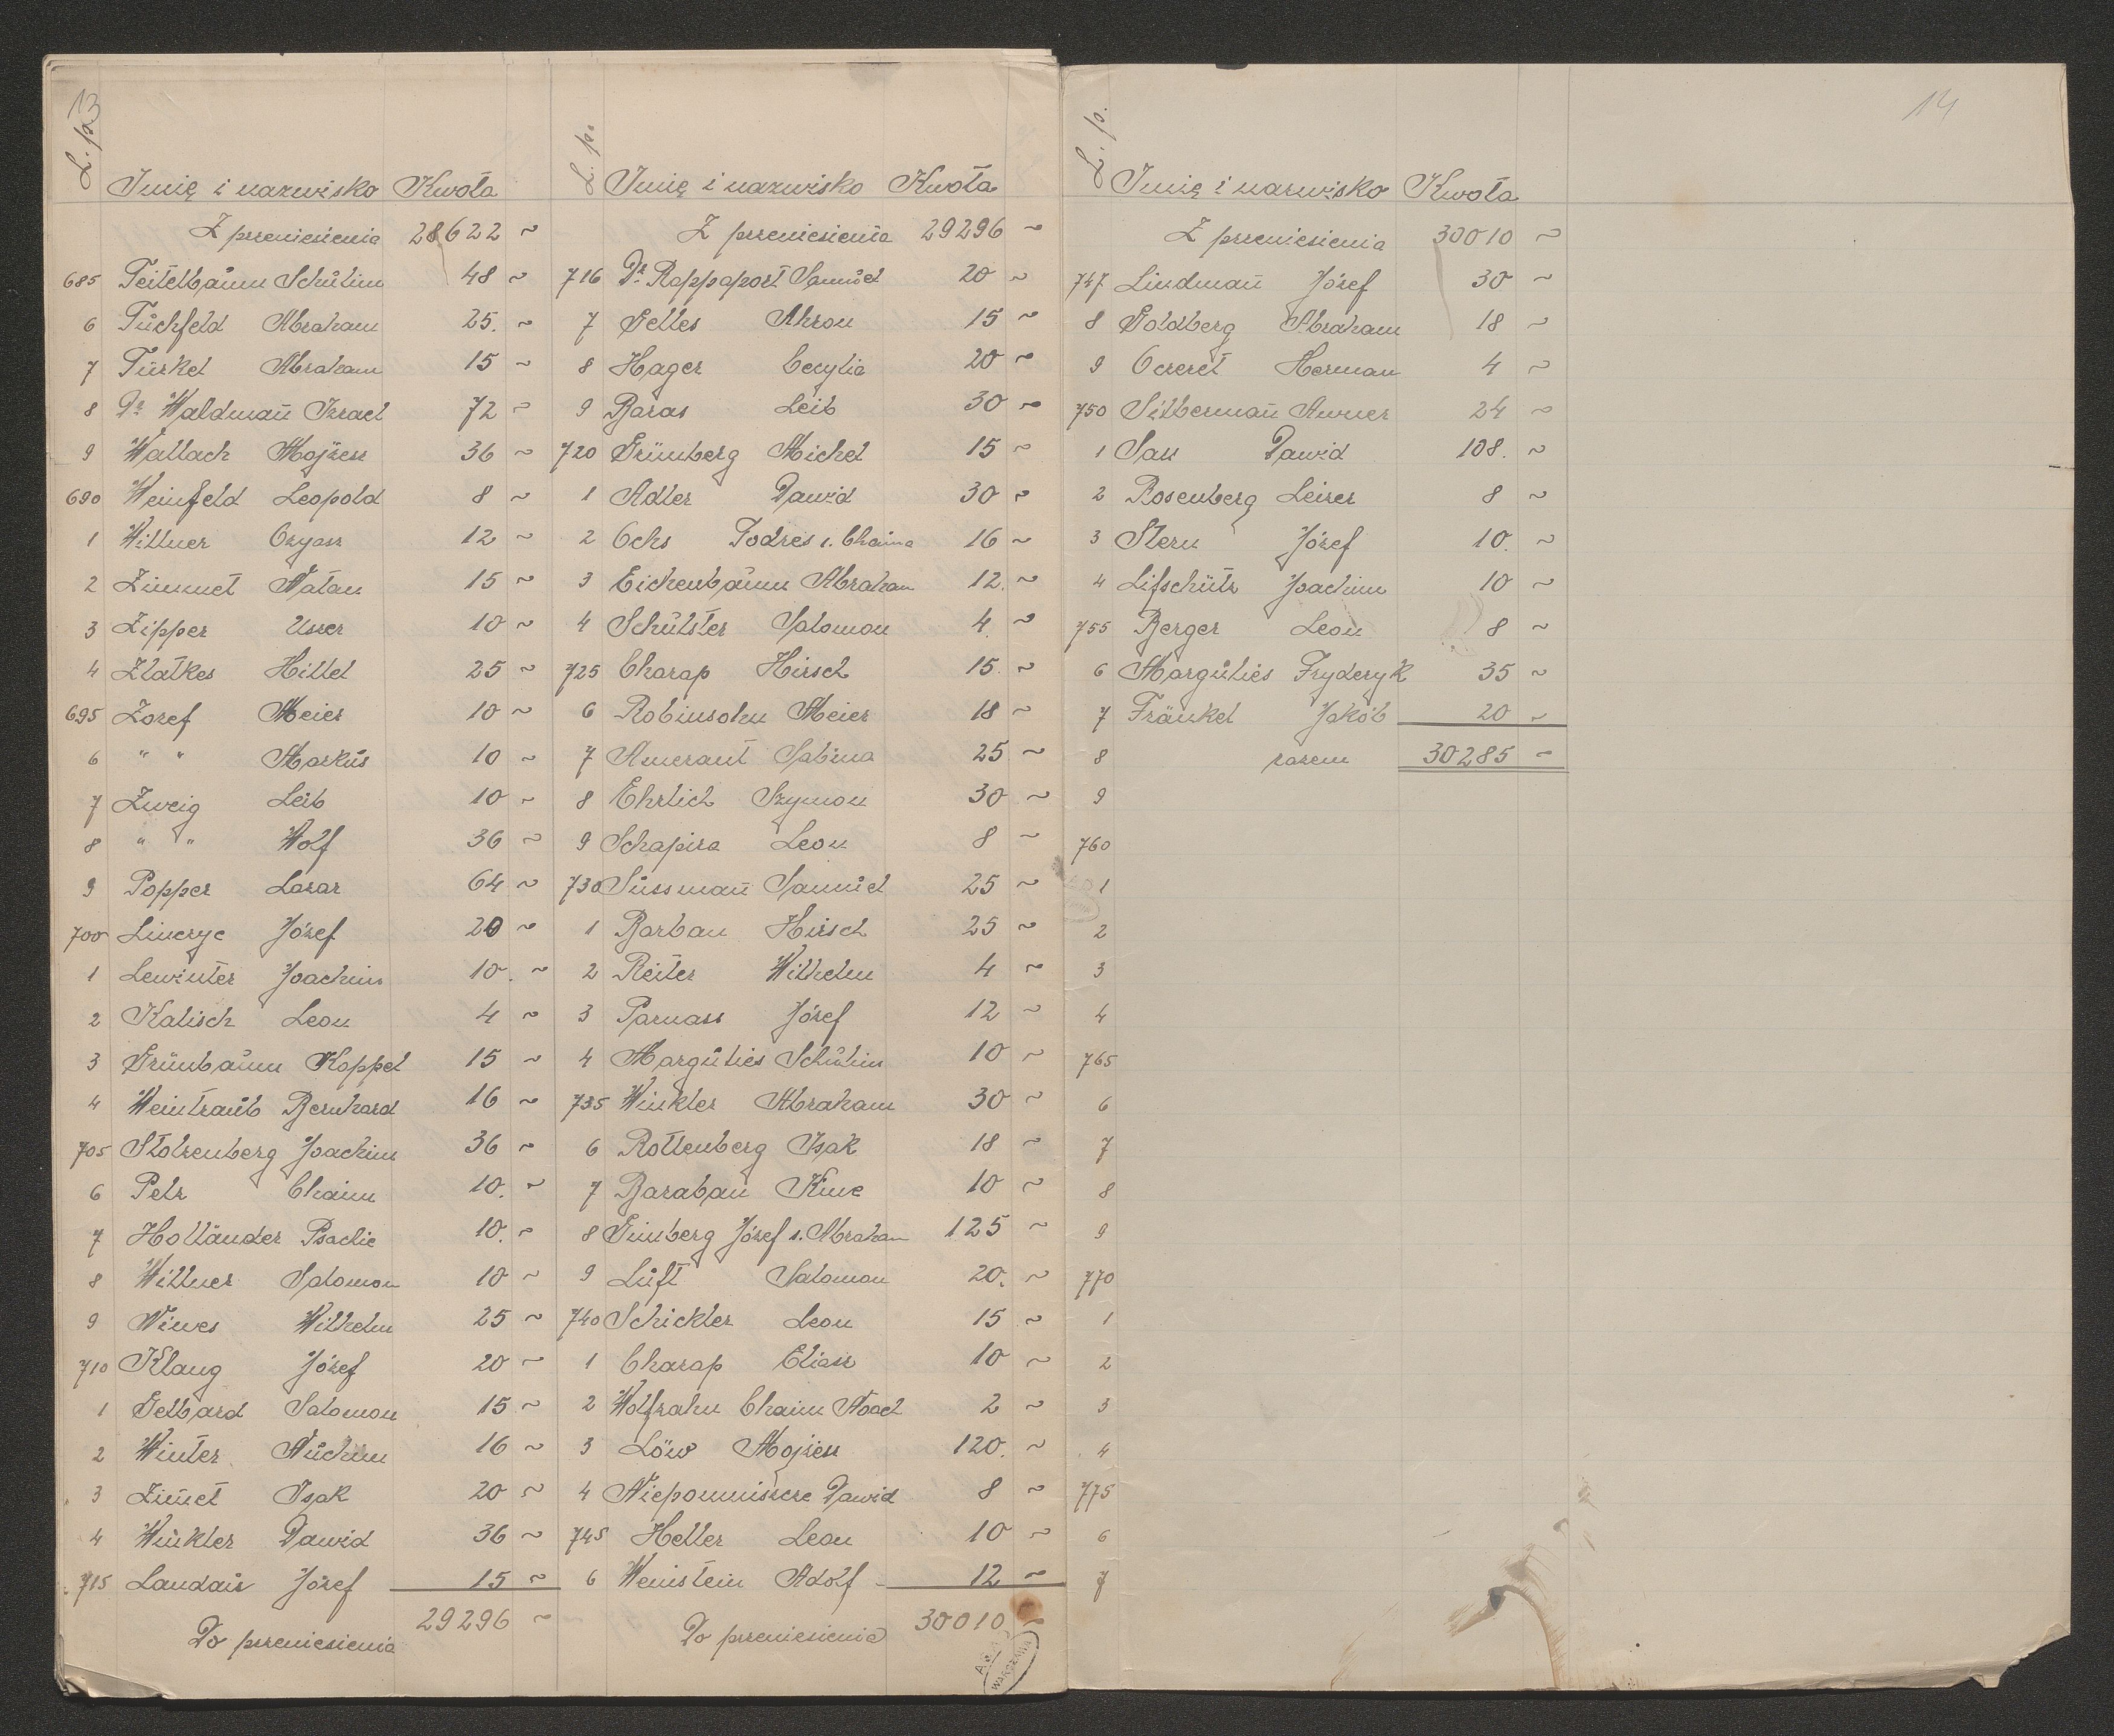 13
L. p.
Imię i nazwisko Kwota
Z przeniesienia 28622 ~
685 Teitelbaum Schulim 48 ~
6 Tuchfeld Abraham 25. ~
7 Türkel Abraham 15 ~
8 Dr Waldman̄ Izrael 72 ~
9 Wallach Mojżesz 36 ~
690 Weinfeld Leopold 8 ~
1 Wittner Ozyasz 12 ~
2 Zimmet Natan 15 ~
3 Zipper Uszer 10 ~
4 Zlatkes Hillel 25 ~
695 Zoref Meier 10 ~
6 " " Markus 10 ~
7 Zweig Leib 10 ~
8 " " Wolf 36 ~
9 Popper Lazar 64 ~
700 Linczyc Józef 20 ~
1 Lewinter Joachim 10. ~
2 Kalisch Leon 4 ~
3 Grünbaum Koppel 15 ~
4 Weintraub Bernhard 16 ~
705 Stolzenberg Joachim 36 ~
6 Pelz Chaim 10. ~
7 Holländer Psachie 10. ~
8 Wittner Salomon 10 ~
9 Niwes Wilhelm 25 ~
710 Klang Józef 20 ~
1 Gelbard Salomon 15 ~
2 Winter Nuchim 16 ~
3 Zim̄et Isak 20 ~
4 Winkler Dawid 36 ~
715 Landau Józef 15 ~
Do przeniesienia 29296 ~
L. p.
Imię i nazwisko Kwota
Z przeniesienia 29296 ~
716 Dr Rappaport Samuel 20 ~
7 Gelles Ahron 15 ~
8 Hager Cecylia 20 ~
9 Baras Leib 30 ~
720 Grünberg Michel 15 ~
1 Adler Dawid 30 ~
2 Ochs Todres s. Chaima 16 ~
3 Eichenbaum Abraham 12. ~
4 Schulster Salomon 4. ~
725 Charap Hirsch 15. ~
6 Robinsohn Meier 18 ~
7 Amerant Sabina 25 ~
8 Ehrlich Szymon 30 ~
9 Schapira Leon 8 ~
730 Süssman̄ Samuel 25 ~
1 Barban Hirsch 25 ~
2 Reiter Wilhelm 4 ~
3 Parnass Józef 12 ~
4 Margulies Schulim 10 ~
735 Winkler Abraham 30 ~
6 Rottenberg Isak 18 ~
7 Baraban Kiwe 10 ~
8 Gimberg Józef s. Abraham 125 ~
9 Luft Salomon 20. ~
740 Schickler Leon 15 ~
1 Charap Eliasz 10 ~
2 Wolfzahn Chaim Noach 2 ~
3 Löw Mojżesz 120. ~
4 Niepomniszcze Dawid 8 ~
745 Heller Leon 10 ~
6 Weinstein Adolf 12 ~
Do przeniesienia 30010 ~
WARSZAWA
14
L. p.
Imię i nazwisko Kwota
Z przeniesienia 30010 ~
747 Lindman̄ Józef 30 ~
8 Goldberg Abraham 18 ~
9 Oczeret Herman 4 ~
750 Silberman̄ Awner 24 ~
1 Sass Dawid 108. ~
2 Rosenberg Leizer 8 ~
3 Stern Józef 10. ~
4 Lifschütz Joachim 10 ~
755 Berger Leon 8 ~
6 Margulies Fryderyk 35 ~
7 Fränkel Jakób 20 ~
8 razem 30285 ~
9
760
1
2
3
4
765
6
7
8
9
770
1
2
3
4
775
6
7